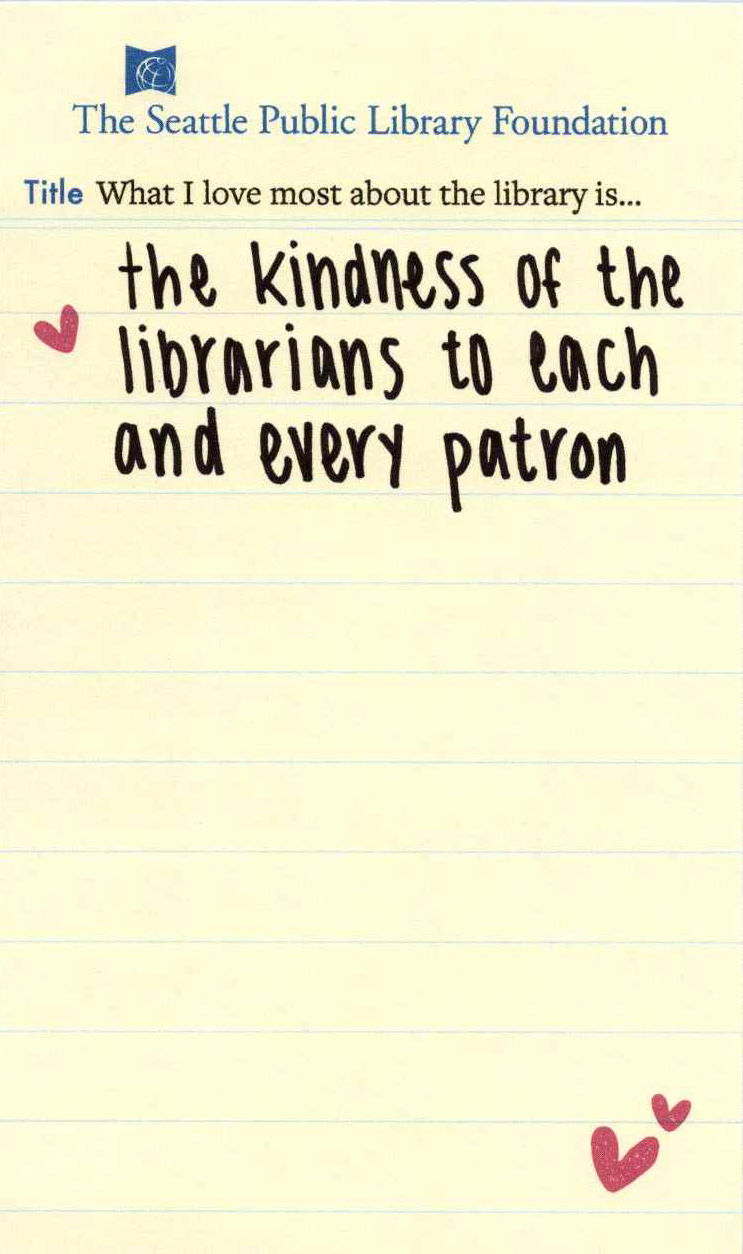 The Seattle Public Library Foundation
Title What I love most about the library is...
the kindness of the
librarians to each
and every patron